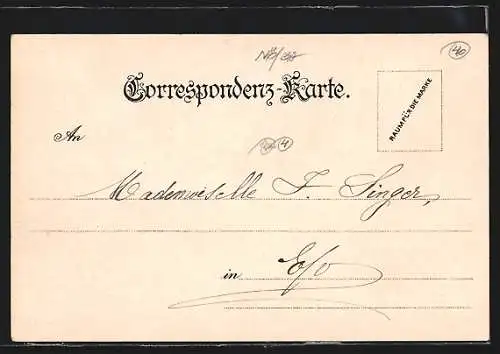 40
Correspondenz-Karte.
RAUM FÜR DIE MARKE
An
4
Mademoiselle F. Singer,
in E/v